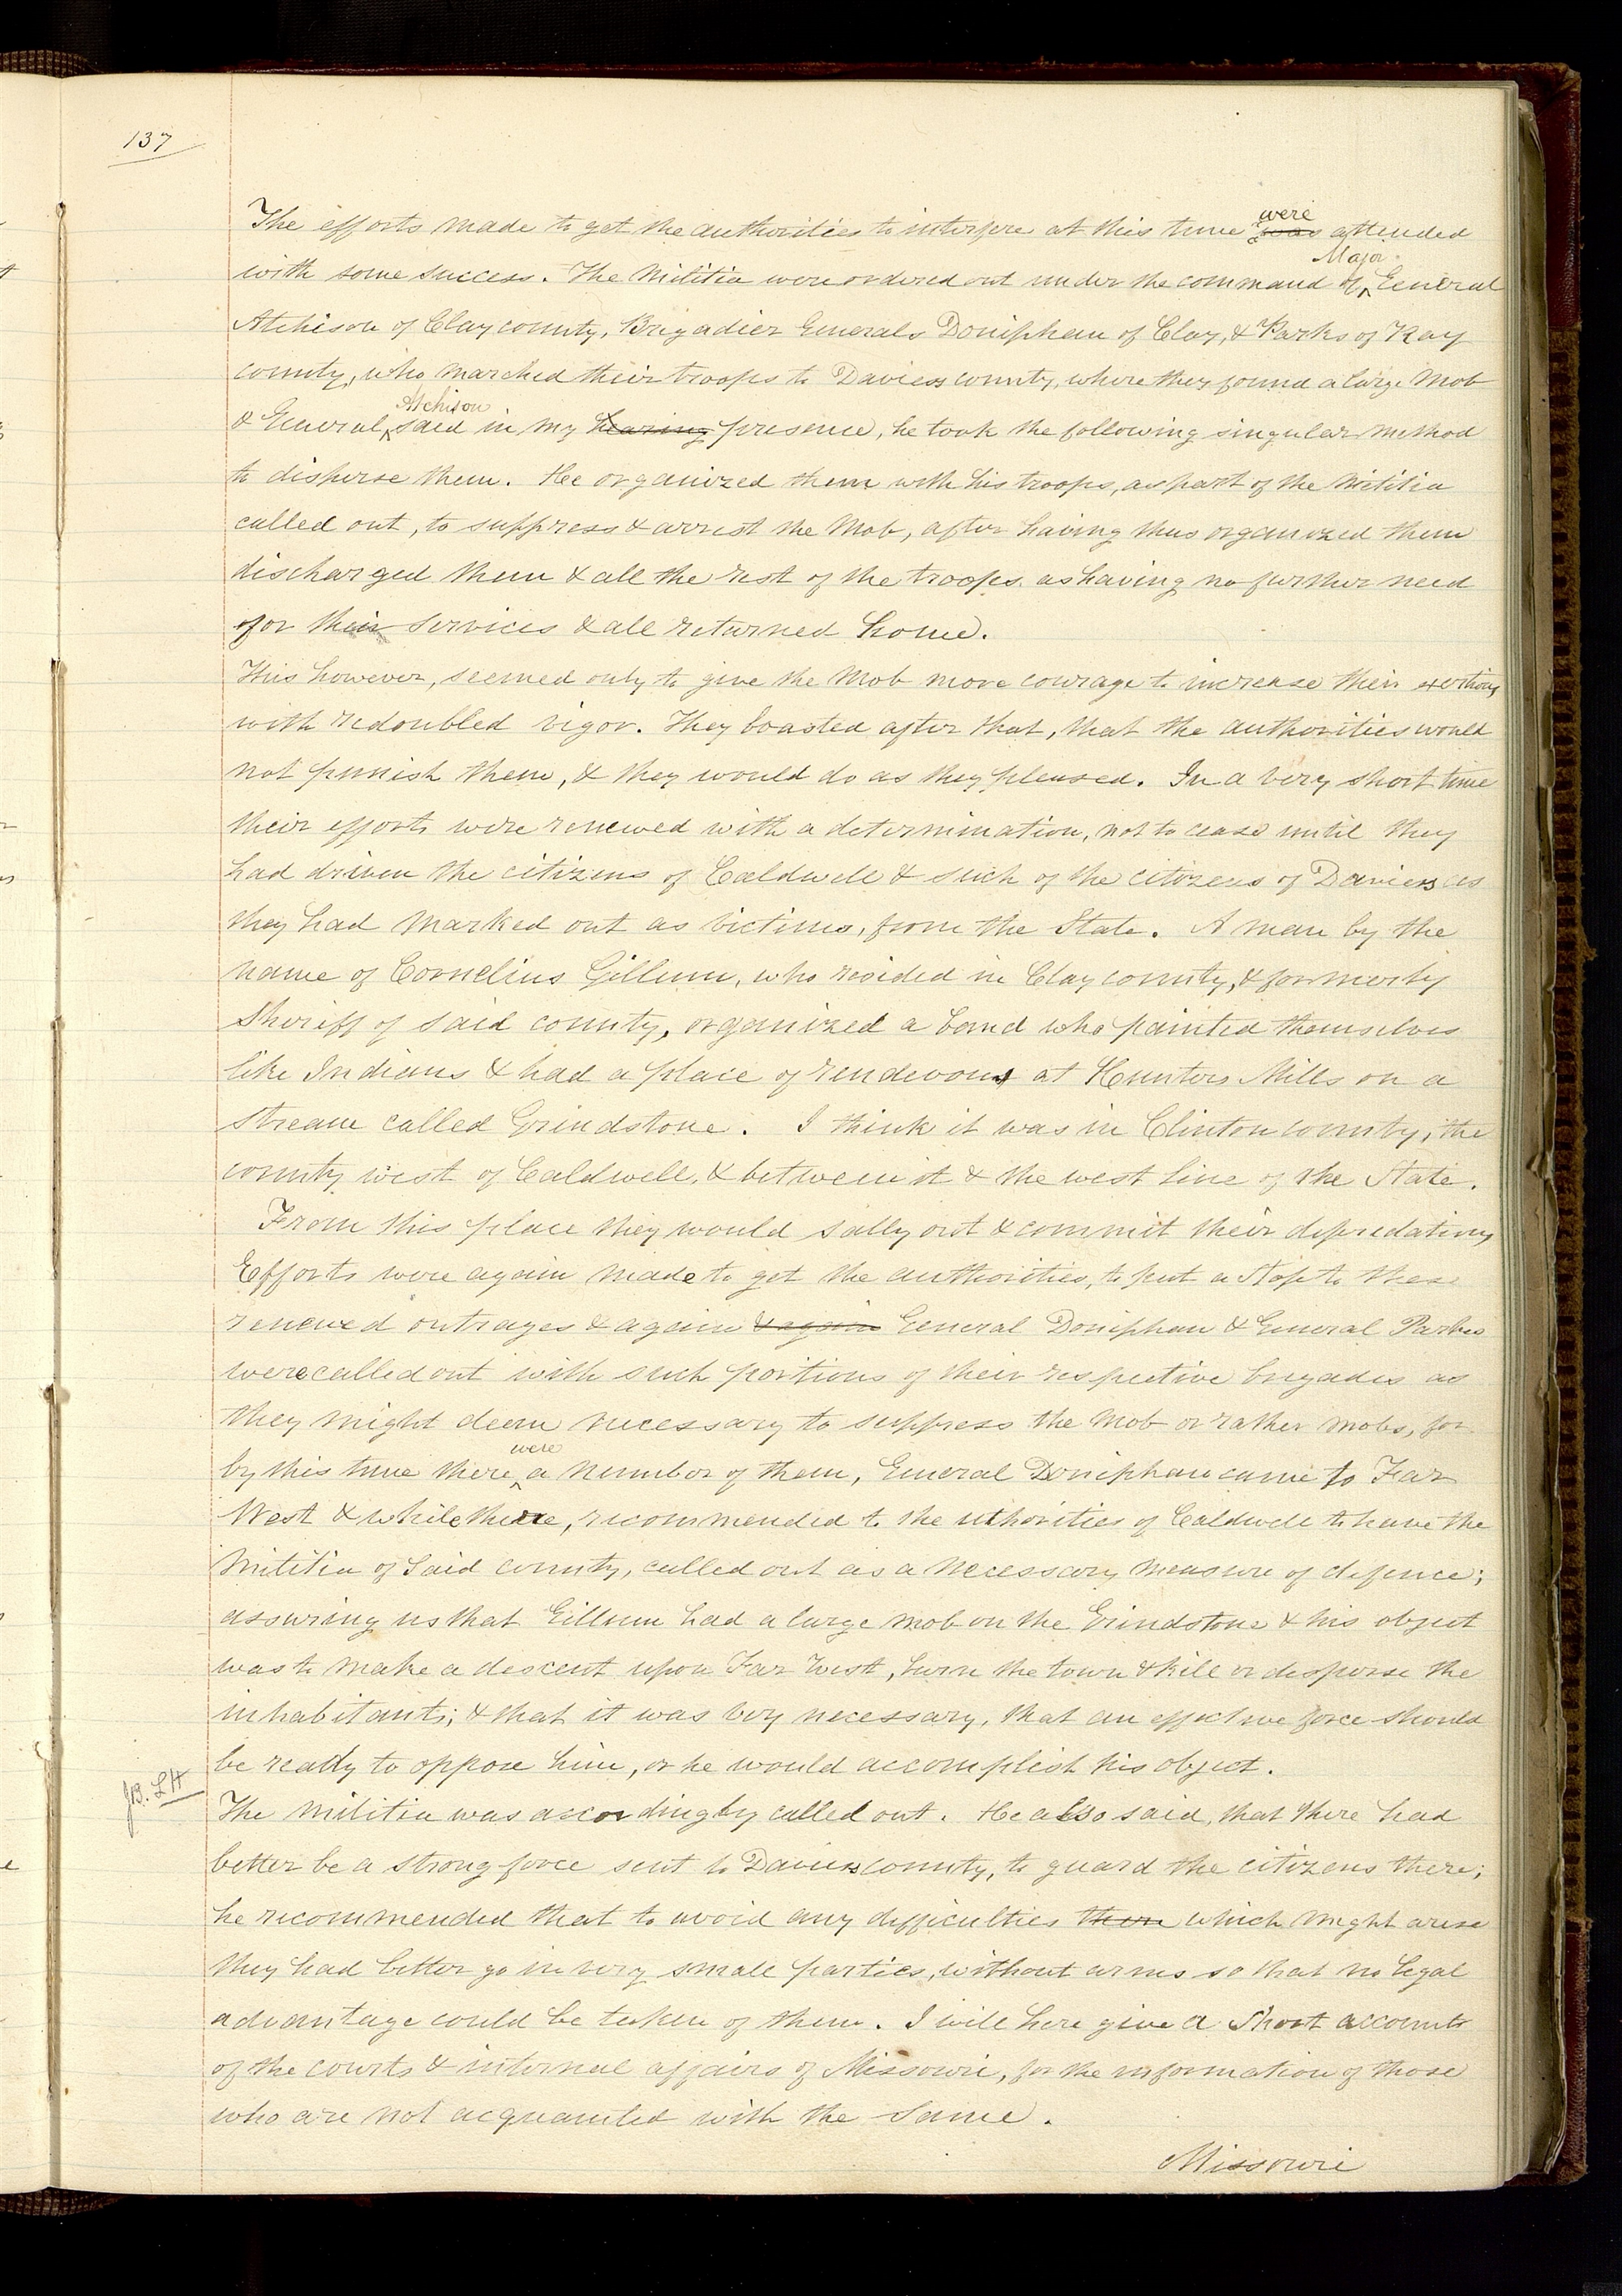 137
The efforts made to get the authorities to interfere at this time was were attended
with some success. The Militia were ordered out under the command of Major General
Atchison of Clay county, Brigadier Generals Doniphan of Clay, & Parks of Ray
county, who marched their troops to Daviess county, where they found a large Mob
& General Atchison said in my hearing presence, he took the following singular method
to disperse them. He organized them with his troops, as part of the Militia
called out, to suppress & arrest the Mob, after having thus organized them
discharged them & all the rest of the troops as having no further need
for their services & all returned home.
This however, seemed only to give the Mob more courage to increase their exertions
with redoubled vigor. They boasted after that, that the authorities would
not punish them, & they would do as they pleased. In a very short time
their efforts were renewed with a determination, not to cease until they
had driven the citizens of Caldwell & such of the citizens of Daviess as
they had marked out as victims, from the State. A man by the
name of Cornelius Gillum, who resided in Clay county, & formerly
Sheriff of said county, organized a band who painted themselves
like Indians & had a place of rendevous at Hunters Mills on a
stream called Grindstone. I think it was in Clinton county, the
county west of Caldwell, & between it & the west line of the State.
From this place they would sally out & commit their depredations
Efforts were again made to get the authorities, to put a stop to these
renewed outrages & again & again General Doniphan & General Parks
were called out with such portions of their respective brigades as
they might deem necessary to suppress the Mob or rather mobs, for
by this time there were a number of them, General Doniphan came to Far
West & while there, recommended to the uthorities of Caldwell to have the
Militia of said county, called out as a necessary measure of defence;
assuring us that Gillum had a large mob on the Grindstone & his object
was to make a descent upon Far West, burn the town & kill or disperse the
inhabitants; & that it was very necessary, that an effective force should
be ready to oppose him, or he would accomplish his object.
JB. LH
The militia was accordingly called out. He also said, that there had
better be a strong force sent to Daviess county, to guard the citizens there;
he recommended that to avoid any difficulties them which might arise
they had better go in very small parties, without arms so that no legal
advantage could be taken of them. I will here give a short account
of the courts & internal affairs of Missouri, for the information of those
who are not acquainted with the same.
Missouri